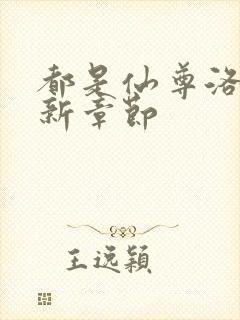 都是仙尊洛
新章节
王逸颖